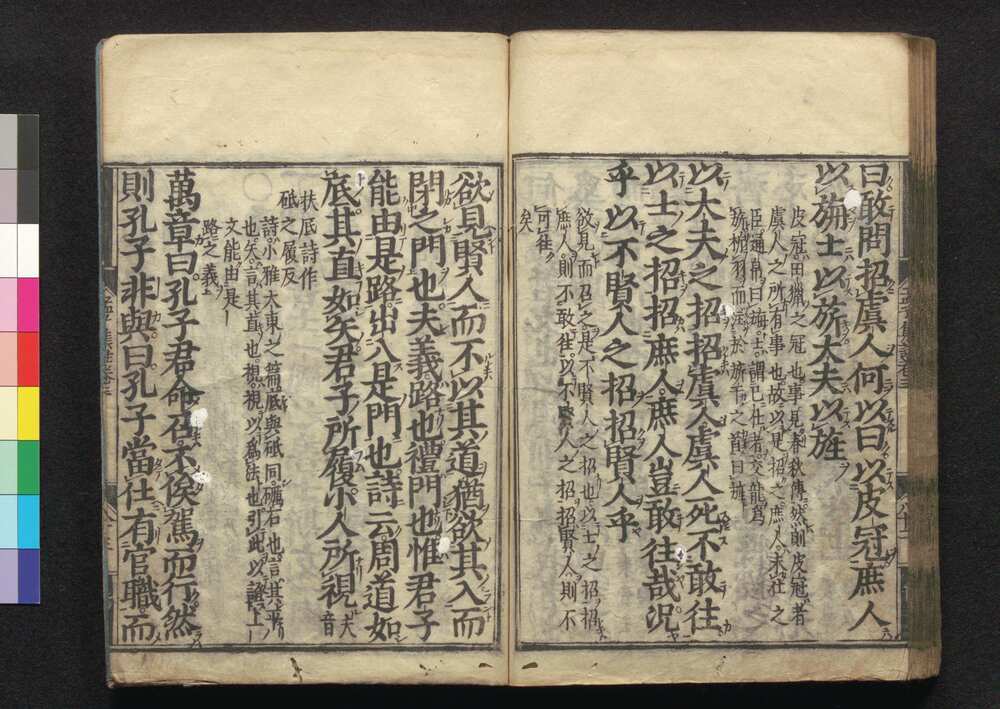 曰敢問招虞人何以曰以皮冠庶人
以旃士以旂大夫以旌
皮冠田獵之冠也事見春秋傳然則皮冠者
虞人之所有事也故以是招之庶人未仕之
臣通帛曰旃士謂已仕者交龍爲
旂析羽而注於旂干之首曰旌
以大夫之招招虞人虞人死不敢往
以士之招招庶人庶人豈敢往哉況
乎以不賢人之招招賢人乎
欲見而召之是不賢人之招也以士之招招
庶人則不敢往以不賢人之招招賢人則不
可往矣
欲見賢人而不以其道猶欲其入而
閉之門也夫義路也禮門也惟君子
能由是路出入是門也詩云周道如
底其直如矢君子所履小人所視
夫音
扶底詩作
砥之履反
詩小雅大東之篇底與砥同礪石也言其平
也矢言其直也視視以爲法也引此以證上
文能由是
路之義
萬章曰孔子君命召不俟駕而行然
則孔子非與曰孔子當仕有官職而